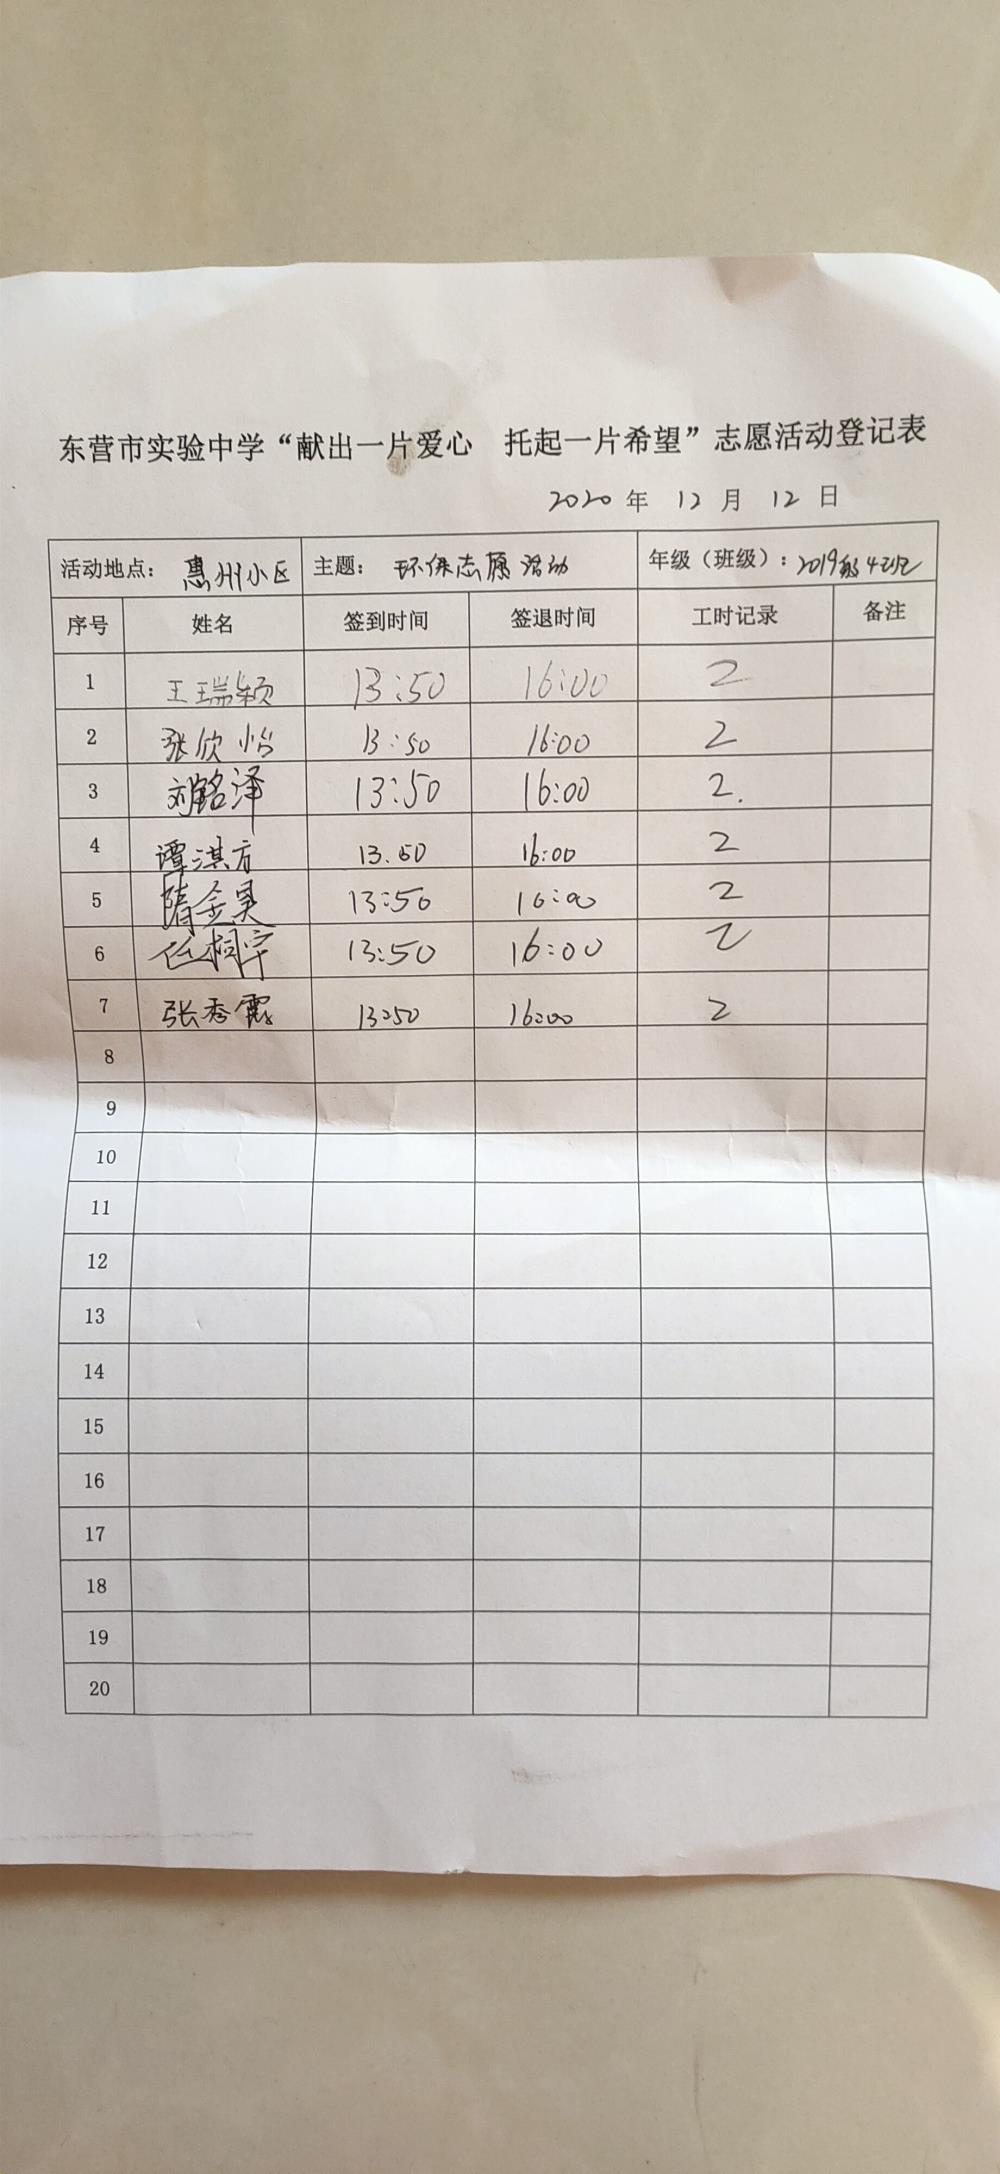 东营市实验中学“献出一片爱心 托起一片希望”志愿活动登记表
2020 年 12 月 12 日
活动地点： 惠州小区 主题： 环保志愿活动 年级（班级）：2019级4班
序号 姓名 签到时间 签退时间 工时记录 备注
1 王瑞颖 13:50 16:00 2
2 张欣怡 13:50 16:00 2
3 刘铭泽 13:50 16:00 2.
4 谭淇方 13.50 16:00 2
5 隋金昊 13:50 16:00 2
6 任桐宇 13:50 16:00 2
7 张秀霞 13:50 16:00 2
8
9
10
11
12
13
14
15
16
17
18
19
20